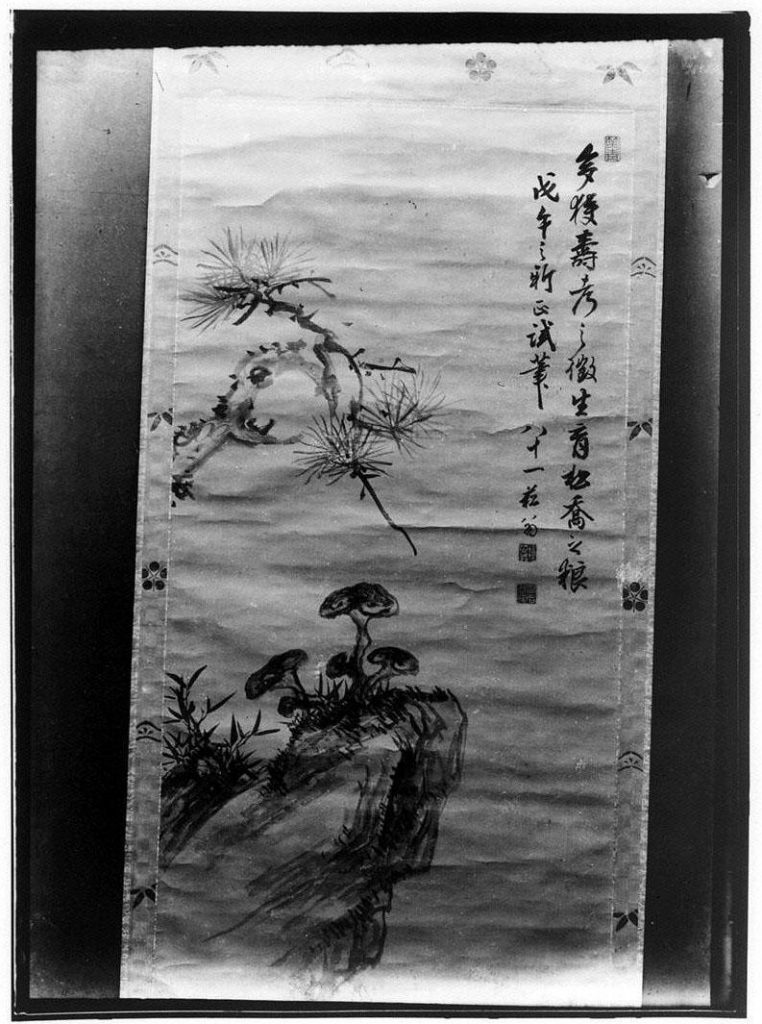 多獲壽考之徴生育松喬之粮
戊午之新正試筆 八十一荘翁